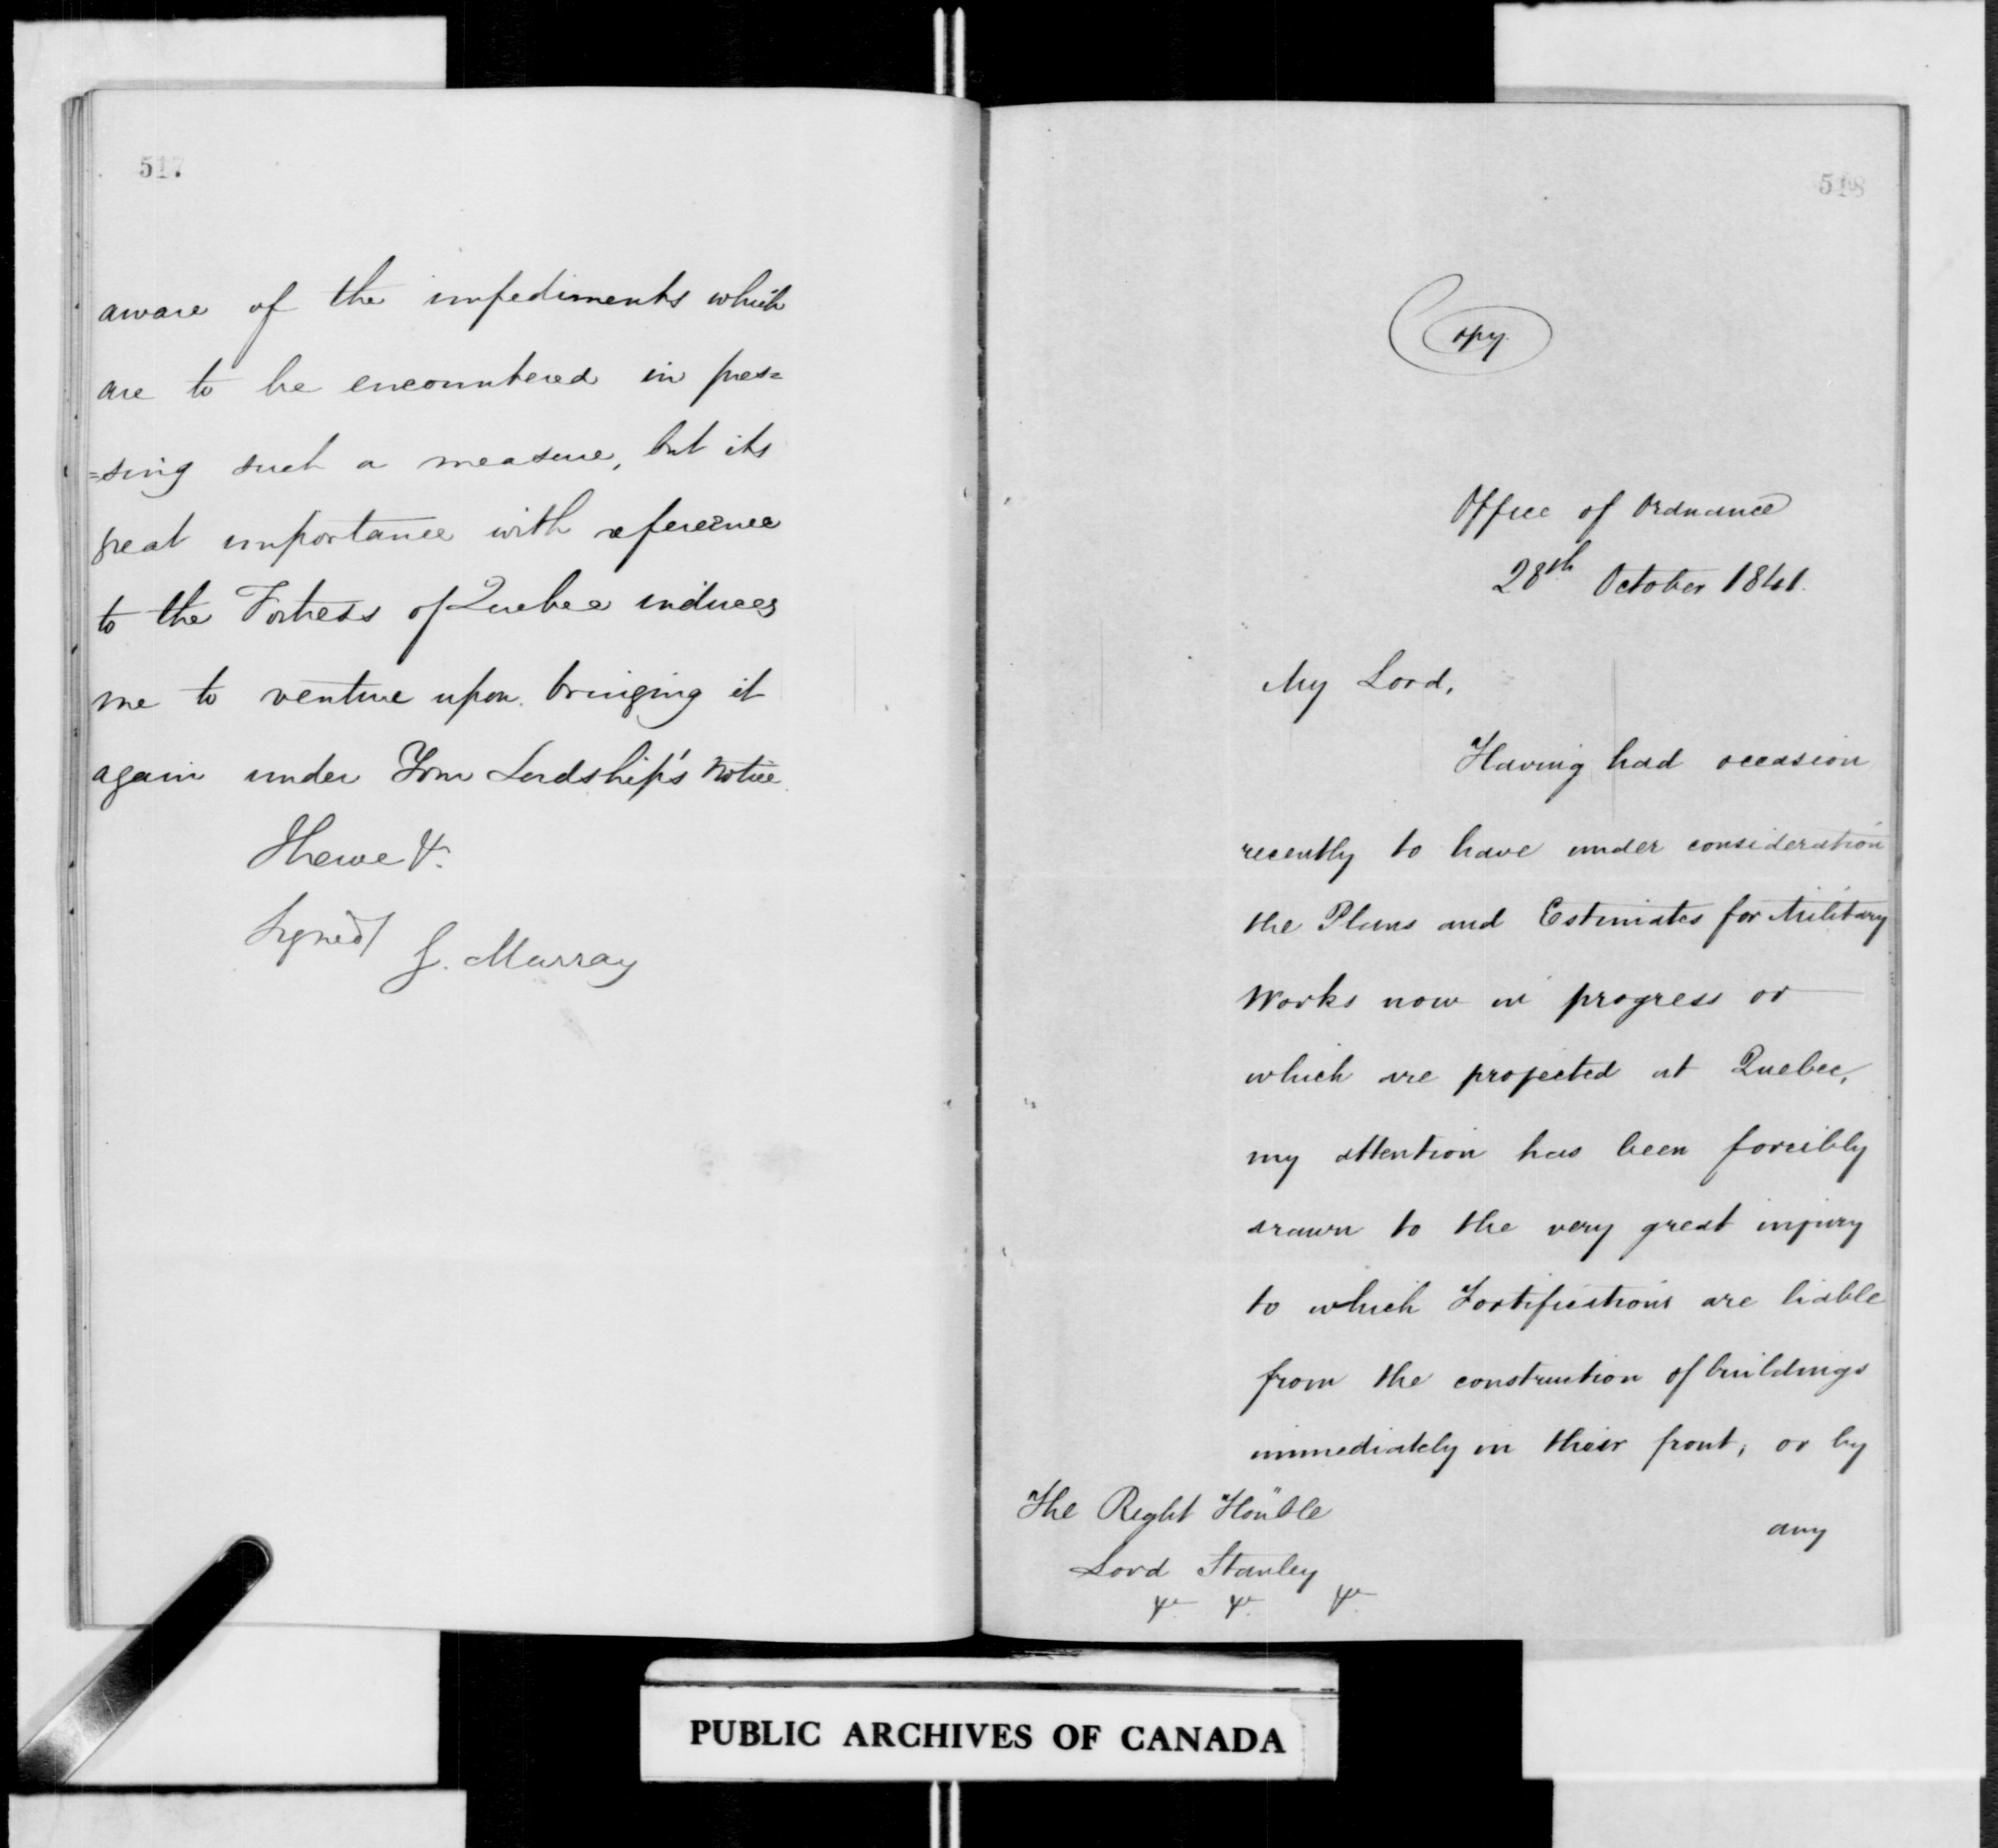 517.
aware of the impediments which
are to be encountered in pres=
=sing such a measure, but its
great importance with reference
to the Fortress of Quebec induces
me to venture upon bringing it
again under Your Lordship's notice.
I have &c.
Signed/ G. Murray
518
Copy
Office of Ordnance
28th October 1841.
My Lord,
Having had occasion
recently to have under consideration
the Plans and Estimates for Military
Works now in progress or
which are projected at Quebec,
my attention has been forcibly
drawn to the very great injury
to which Fortifications are liable
from the construction of buildings
immediately in their front, or by
any
The Right Honble
Lord Stanley
&c &c &c
PUBLIC ARCHIVES OF CANADA